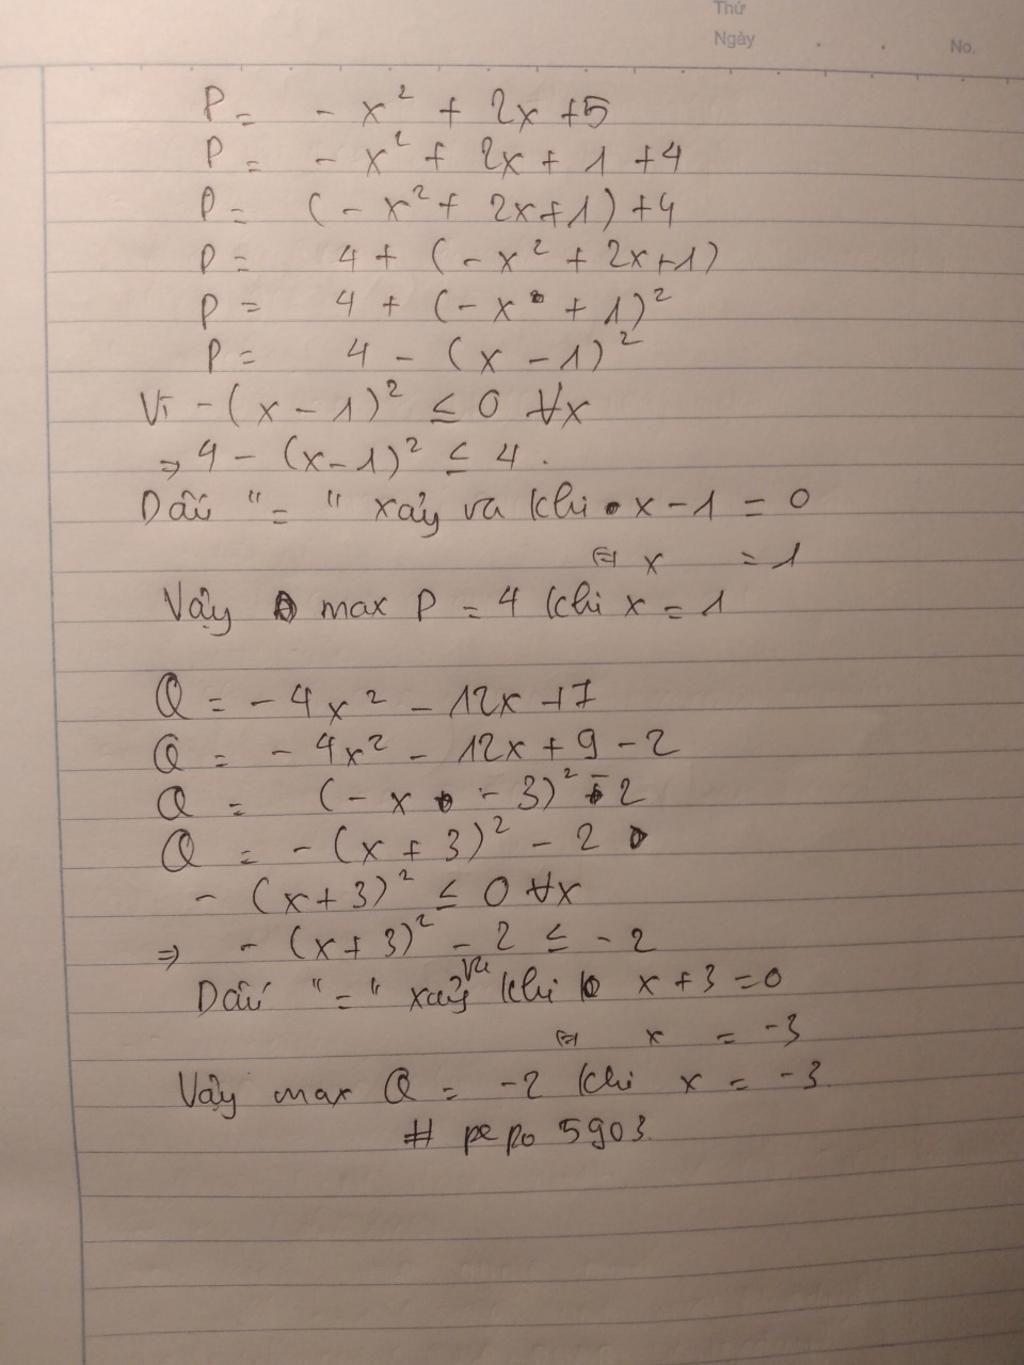 Thứ
Ngày . . No.
P = - x² + 2x +5
P = - x² + 2x + 1 +4
P = (- x² + 2x+1) +4
P = 4 + (- x² + 2x+1)
P = 4 + (- x + 1)²
P = 4 - (x - 1)²
Vì -(x - 1)² ≤ 0 ∀x
⇒ 4 - (x-1)² ≤ 4 .
Dấu "=" xảy ra khi x - 1 = 0
⇔ x = 1
Vậy max P = 4 khi x = 1
Q = - 4x² - 12x +7
Q = - 4x² - 12x + 9 - 2
Q = (- x - 3)² - 2
Q = - (x + 3)² - 2
- (x+3)² ≤ 0 ∀x
⇒ - (x+3)² - 2 ≤ - 2
Dấu "=" xảy ra khi x + 3 = 0
⇔ x = -3
Vậy max Q = -2 khi x = -3.
# pepo 5903.